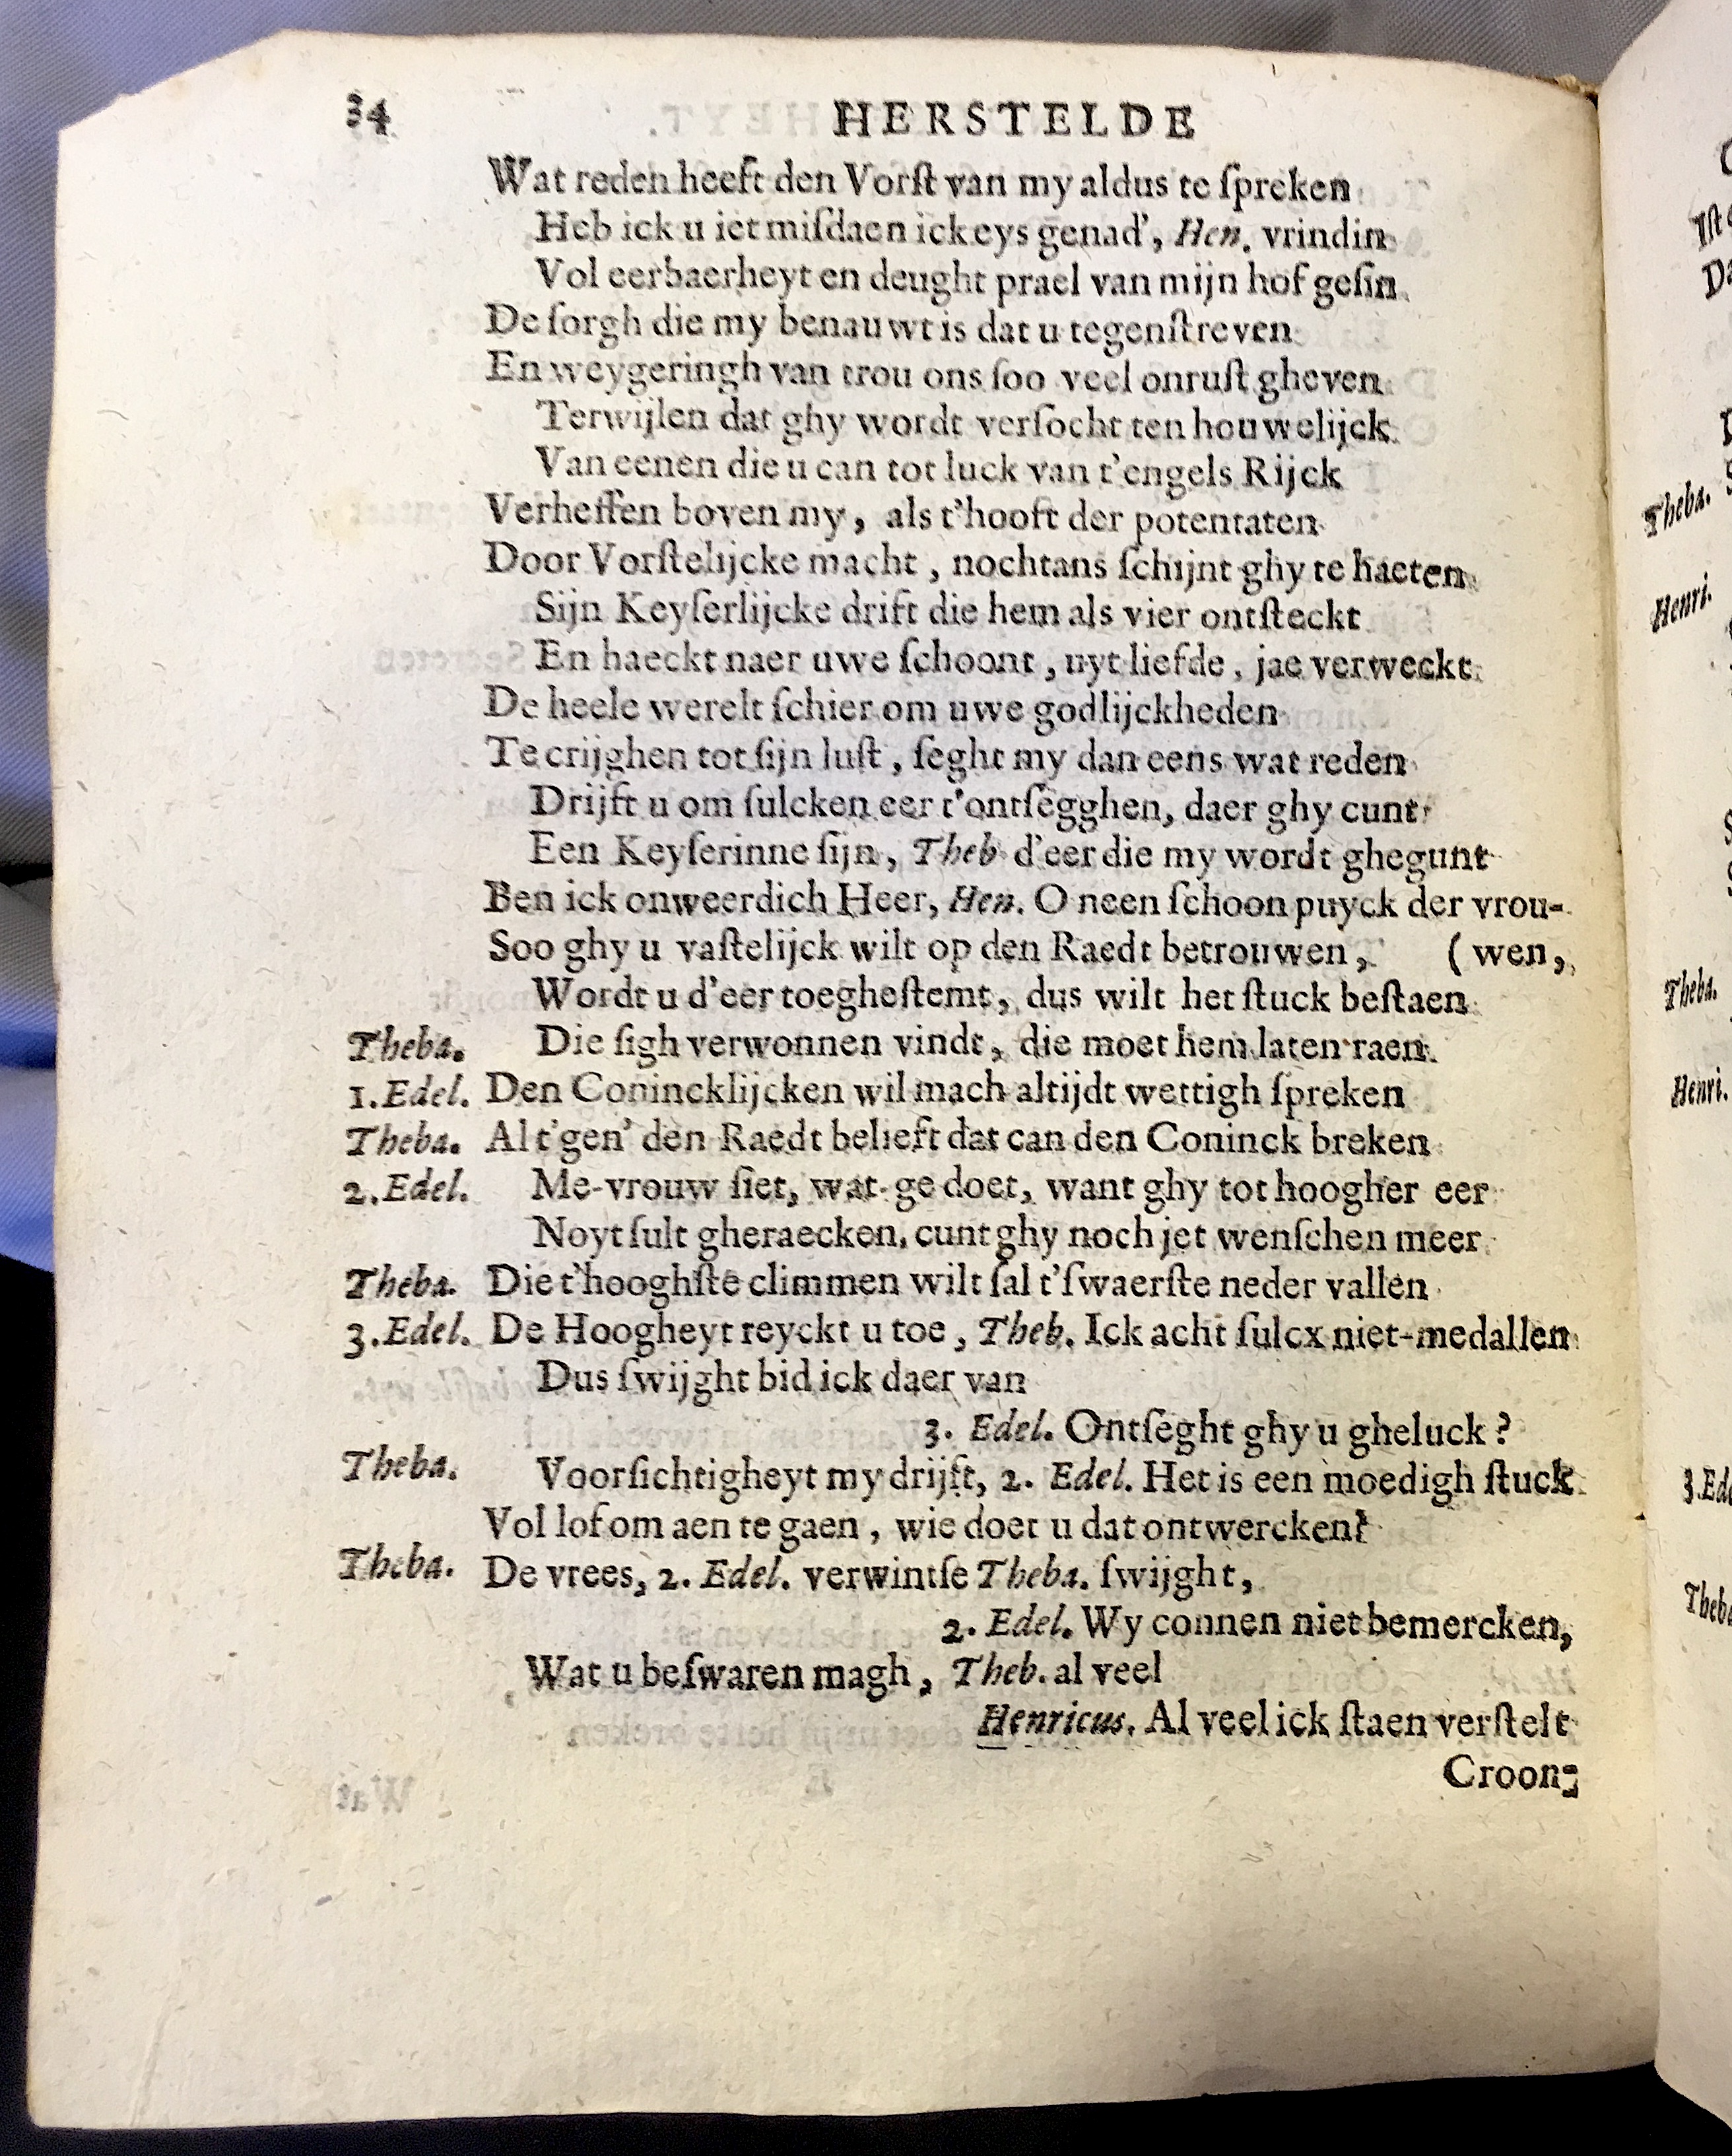 34 HERSTELDE
Wat reden heeft den Vorſt van my aldus te ſpreken
Heb ick u iet miſdaen ick eys genad', Hen. vrindin
Vol eerbaerheyt en deught prael van mijn hof geſin
De ſorgh die my benauwt is dat u tegenſtreven
En weygeringh van trou ons ſoo veel onruſt gheven
Terwijlen dat ghy wordt verſocht ten houwelijck
Van eenen die u can tot luck van t'engels Rijck
Verheffen boven my, als t'hooft der potentaten
Door Vorſtelijcke macht, nochtans ſchijnt ghy te haeten
Sijn Keyſerlijcke drift die hem als vier ontſteckt
En haeckt naer uwe ſchoont, uyt liefde, jae verweckt
De heele werelt ſchier om uwe godlijckheden
Te crijghen tot ſijn luſt, ſeght my dan eens wat reden
Drijft u om ſulcken eer t'ontſegghen, daer ghy cunt
Een Keyſerinne ſijn, Theb d'eer die my wordt ghegunt
Ben ick onweerdich Heer, Hen. O neen ſchoon puyck der vrou-
Soo ghy u vaſtelijck wilt op den Raedt betrouwen, (wen,
Wordt u d'eer toegheſtemt, dus wilt het ſtuck beſtaen
Theba. Die ſigh verwonnen vindt, die moet hem laten raen.
1. Edel. Den Conincklijcken wil mach altijdt wettigh ſpreken
Theba. Al t'gen' den Raedt belieft dat can den Coninck breken
2. Edel. Me-vrouw ſiet, wat ge doet, want ghy tot hoogher eer
Noyt ſult gheraecken, cunt ghy noch jet wenſchen meer
Theba. Die t'hooghſte climmen wilt ſal t'ſwaerſte neder vallen
3. Edel. De Hoogheyt reyckt u toe, Theb. Ick acht ſulcx niet-medallen
Dus ſwijght bid ick daer van
3. Edel. Ontſeght ghy u gheluck?
Theba. Voorſichtigheyt my drijft, 2. Edel. Het is een moedigh ſtuck
Vol lof om aen te gaen, wie doet u dat ontwercken?
Theba. De vrees, 2. Edel. verwintſe Theba. ſwijght,
2. Edel. Wy connen niet bemercken,
Wat u beſwaren magh, Theb. al veel
Henricus. Al veel ick ſtaen verſtelt
Croon;
Theba.
Henri.
Theba.
Henri.